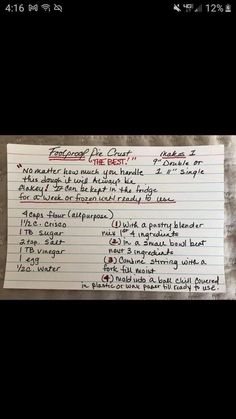 4:16 12%
Foolproof Pie Crust makes 1
"THE BEST!" 9" Double or
"No matter how much you handle 1 11" Single
this dough it will Always be
flakey! It can be kept in the fridge
for a week or frozen until ready to use
4 cups flour (allpurpose)
1½ c. Crisco (1) With a pastry blender
1 TB sugar mix 1st 4 ingredients
2 tsp. salt (2) In a small bowl beat
1 TB vinegar next 3 ingredients
1 egg (3) Combine stirring with a
½ c. water fork till moist
(4) mold into a ball chill covered
in plastic or wax paper till ready to use.